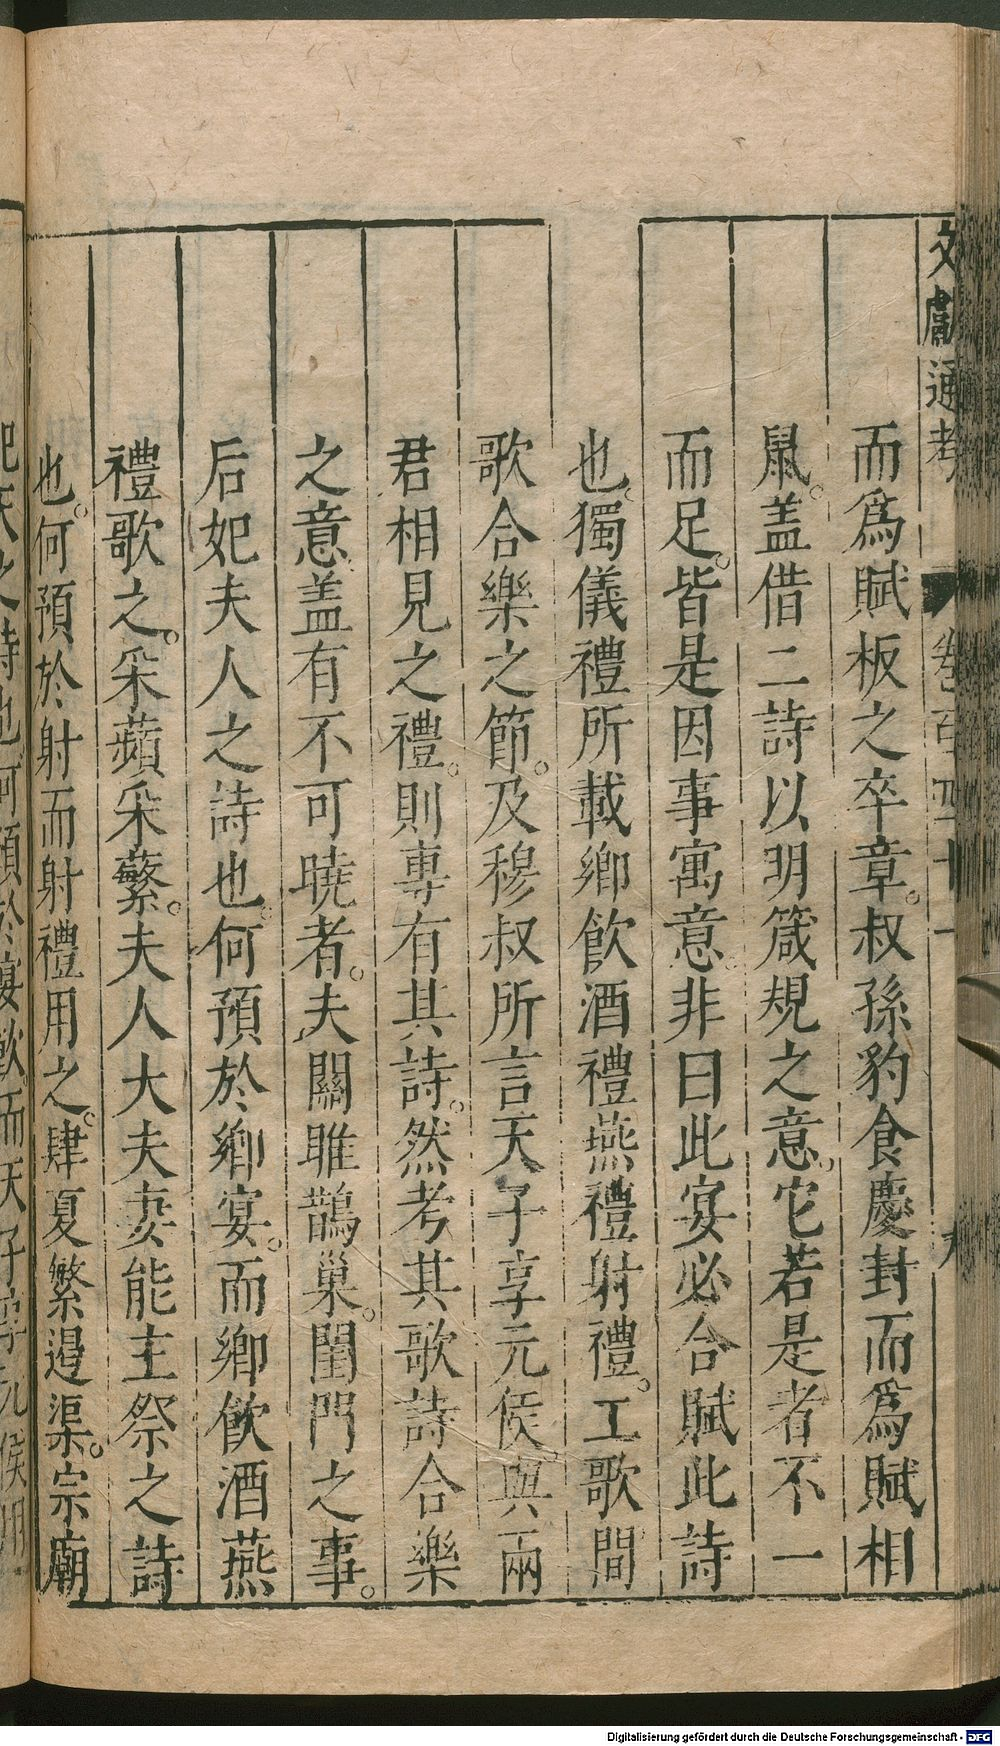 文獻通考 卷百四十一 九
而爲賦板之卒章。叔孫豹食慶封而爲賦相
鼠。盖借二詩以明箴規之意。它若是者不一
而足。皆是因事寓意。非曰此宴必合賦此詩
也。獨儀禮所載鄉飲酒禮燕禮射禮。工歌間
歌合樂之節。及穆叔所言天子享元侯與兩
君相見之禮。則專有其詩。然考其歌詩合樂
之意。盖有不可曉者。夫關雎鵲巢。閨門之事。
后妃夫人之詩也。何預於鄉宴。而鄉飲酒燕
禮歌之。采蘋采蘩。夫人大夫妻能主祭之詩
也。何預於射而射禮用之。肆夏繁遏渠。宗廟
Digitalisierung gefördert durch die Deutsche Forschungsgemeinschaft - DFG